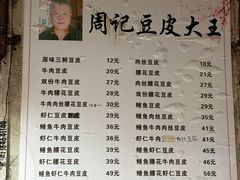 周记豆皮大王
原味三鲜豆皮 12元
牛肉豆皮 20元
双份牛肉豆皮 30元
牛肉腰花豆皮 28元
牛肉肉丝腰花豆皮 35元
虾仁豆皮 29元
鳝鱼豆皮 29元
虾仁牛肉豆皮 36元
鳝鱼牛肉豆皮 36元
虾仁腰花豆皮 39元
鳝鱼腰花豆皮 39元
鳝鱼虾仁豆皮 49元
肉丝豆皮 18元
腰花豆皮 21元
双份腰花豆皮
肉丝腰花豆皮
虾仁肉丝豆皮
鳝鱼肉丝豆皮
鳝鱼牛肉肉丝豆皮 41元
虾仁牛肉 41元
虾仁腰花豆皮 45元
鳝鱼腰花牛肉豆皮 50元
鳝鱼虾仁腰花豆皮 56元